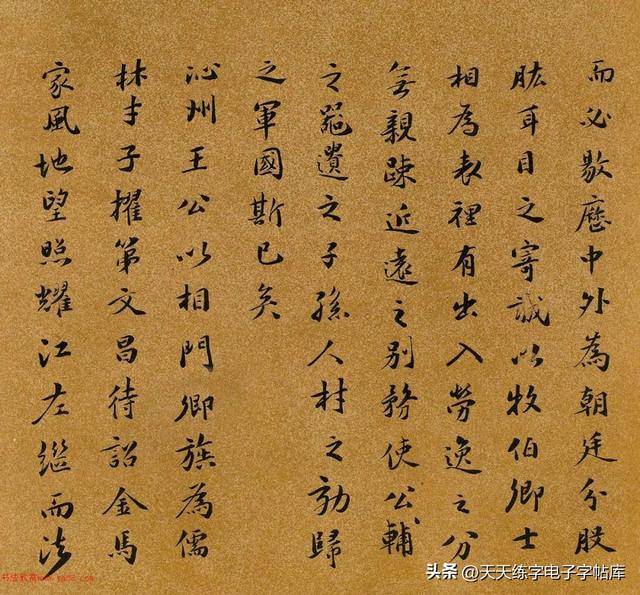 而必敭歷中外為朝廷分股
肱耳目之寄誠以牧伯卿士
相為表裡有出入勞逸之分
無親疎近遠之別務使公輔
之器遺之子孫人材之効歸
之軍國斯已矣
沁州王公以相門卿族為儒
林才子擢第文昌待詔金馬
家風地望照耀江左繼而法
书法教育www.ya58.com
头条@天天练字电子字帖库